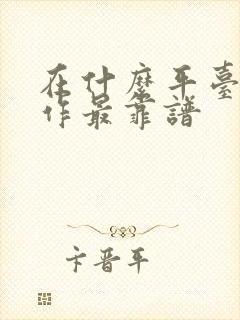 在什麼平臺
作最靠譜
卞晋平